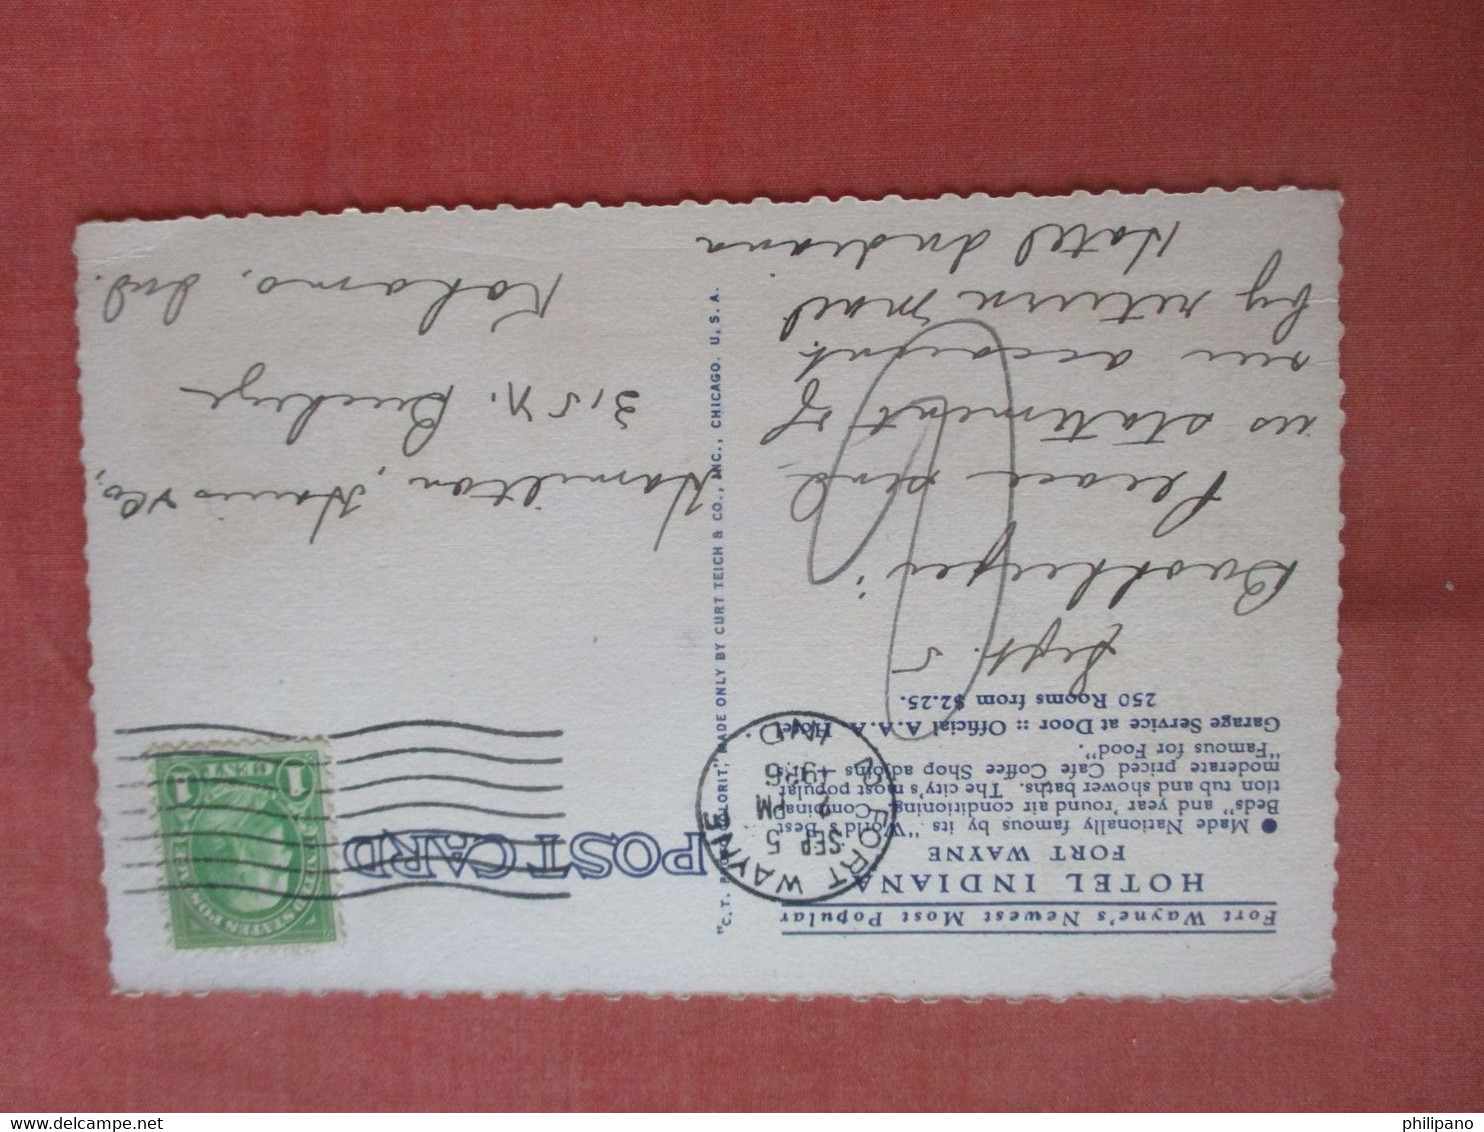 Fort Wayne's Newest Most Popular
HOTEL INDIANA
FORT WAYNE
● Made Nationally famous by its "World's Best
Beds" and year 'round air conditioning. Combina-
tion tub and shower baths. The city's most popular
moderate priced Cafe Coffee Shop adjoins
"Famous for Food".
Garage Service at Door :: Official A.A.A. Hotel.
250 Rooms from $2.25.
Sept. 5
Bookkeeper:
Please send
us statement of
our account
by return mail
Hotel Indiana
"C. T. COLORIT," MADE ONLY BY CURT TEICH & CO., INC., CHICAGO. U. S. A.
POST CARD
FORT WAYNE
SEP 5
2 PM
1936
IND.
UNITED STATES POSTAGE
1 CENT 1
Hamilton, Harris & Co.,
315 N. Buckeye
Kokomo, Ind.
philipano